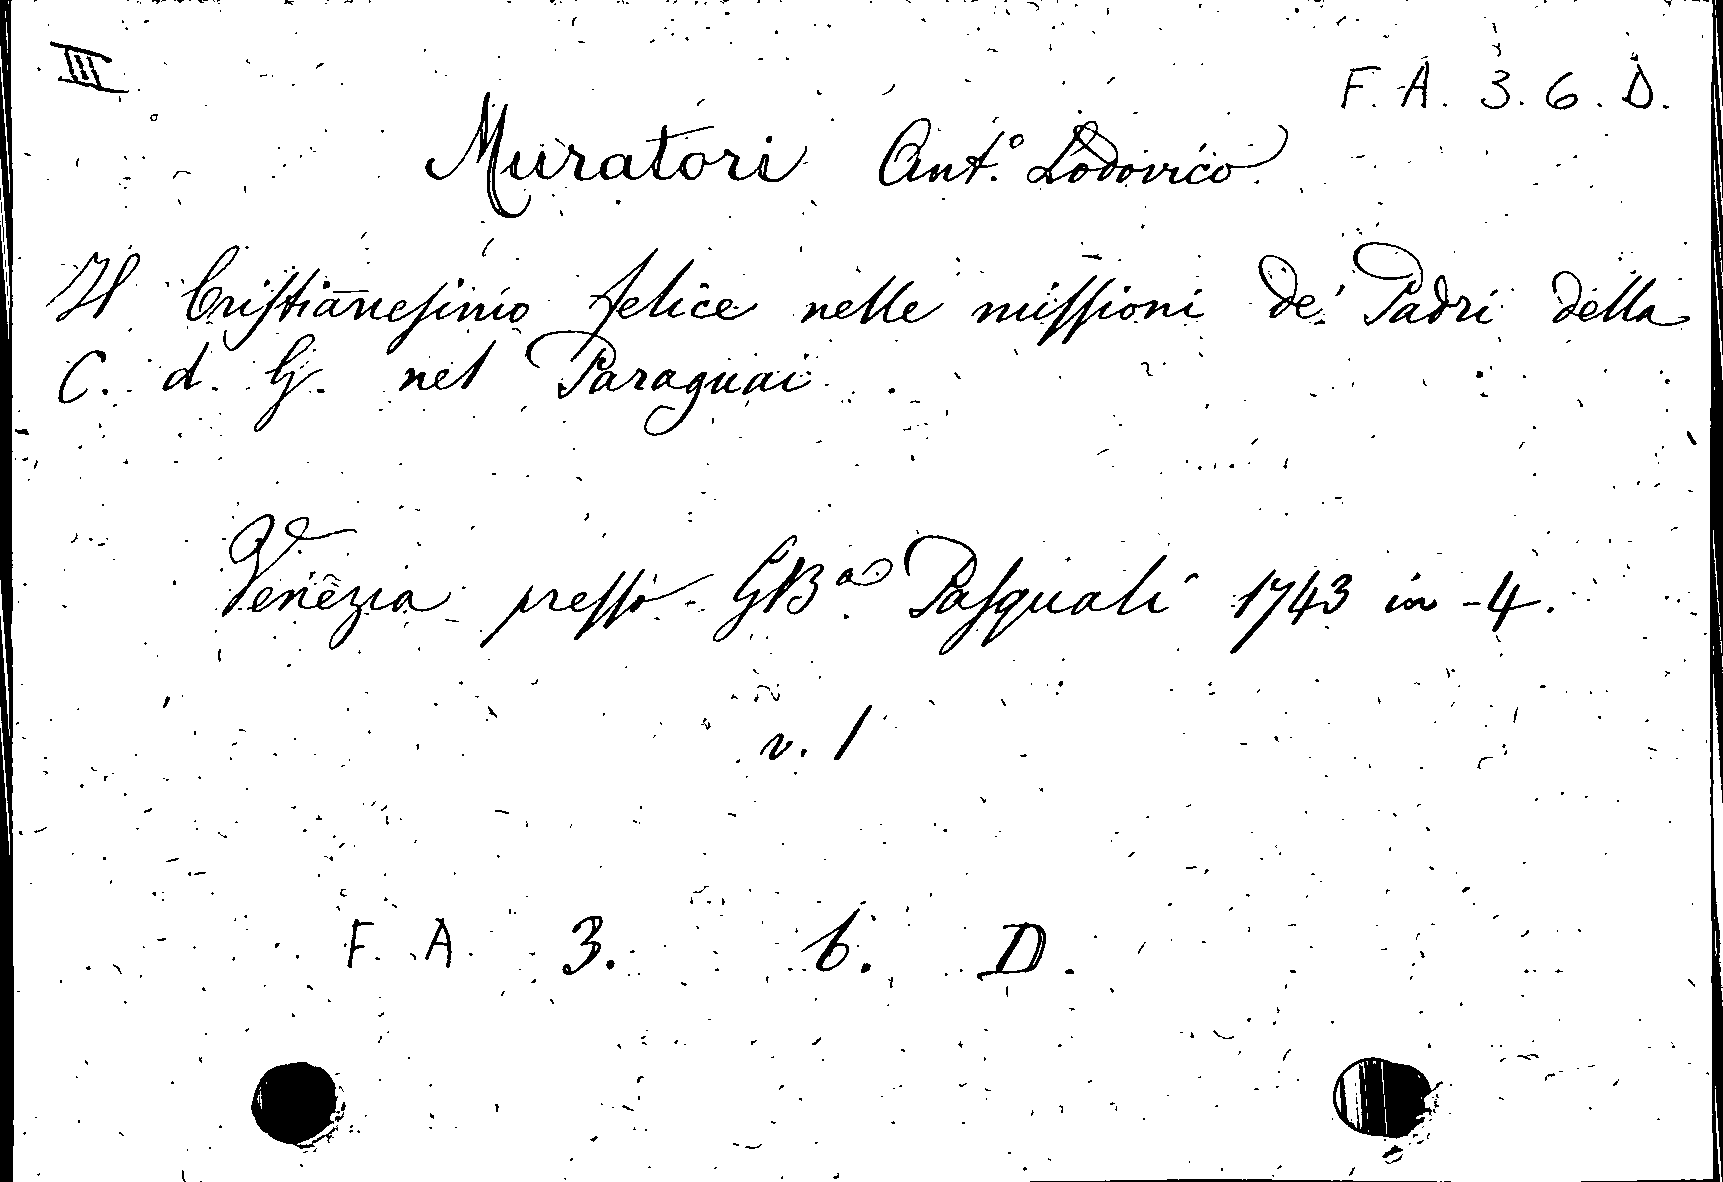 III
F. A. 3. 6. D.
Muratori Ant.º Lodovico
Il Cristianesimo felice nelle missioni de' Padri della
C. d. G. nel Paraguai
Venezia presso GBª Pasquali 1743 in -4.
v. 1
F. A. 3. 6. D.